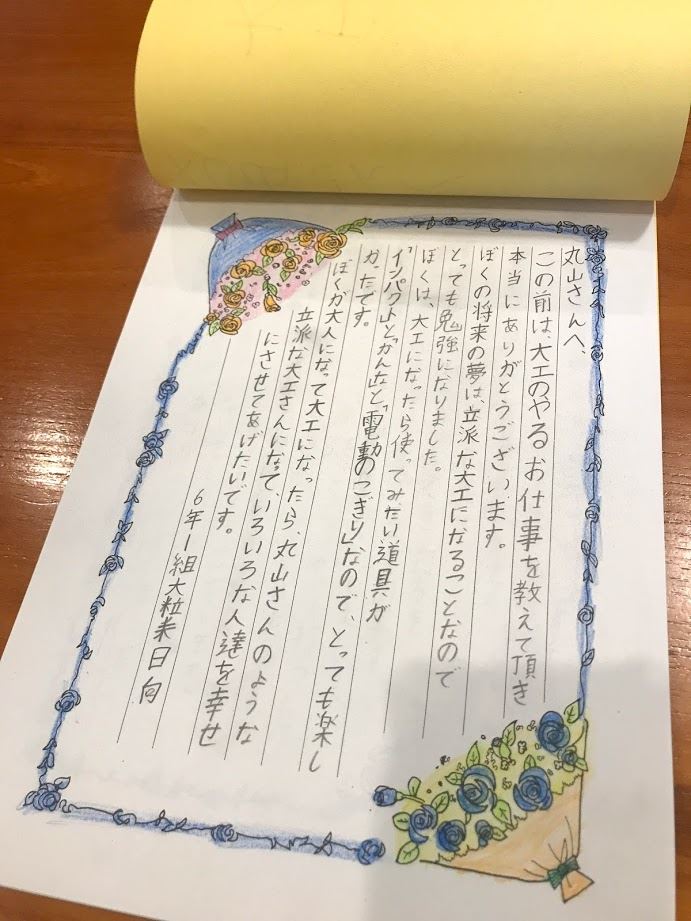 丸山さんへ、
この前は、大工のやるお仕事を教えて頂き
本当にありがとうございます。
ぼくの将来の夢は、立派な大工になることなので
とっても勉強になりました。
ぼくは、大工になったら使ってみたい道具が
「インパクト」と「かんな」と「電動のこぎり」なので、とっても楽し
かったです。
ぼくが大人になって大工になったら、丸山さんのような
立派な大工さんになって、いろいろな人達を幸せ
にさせてあげたいです。
6年1組大粒来日向